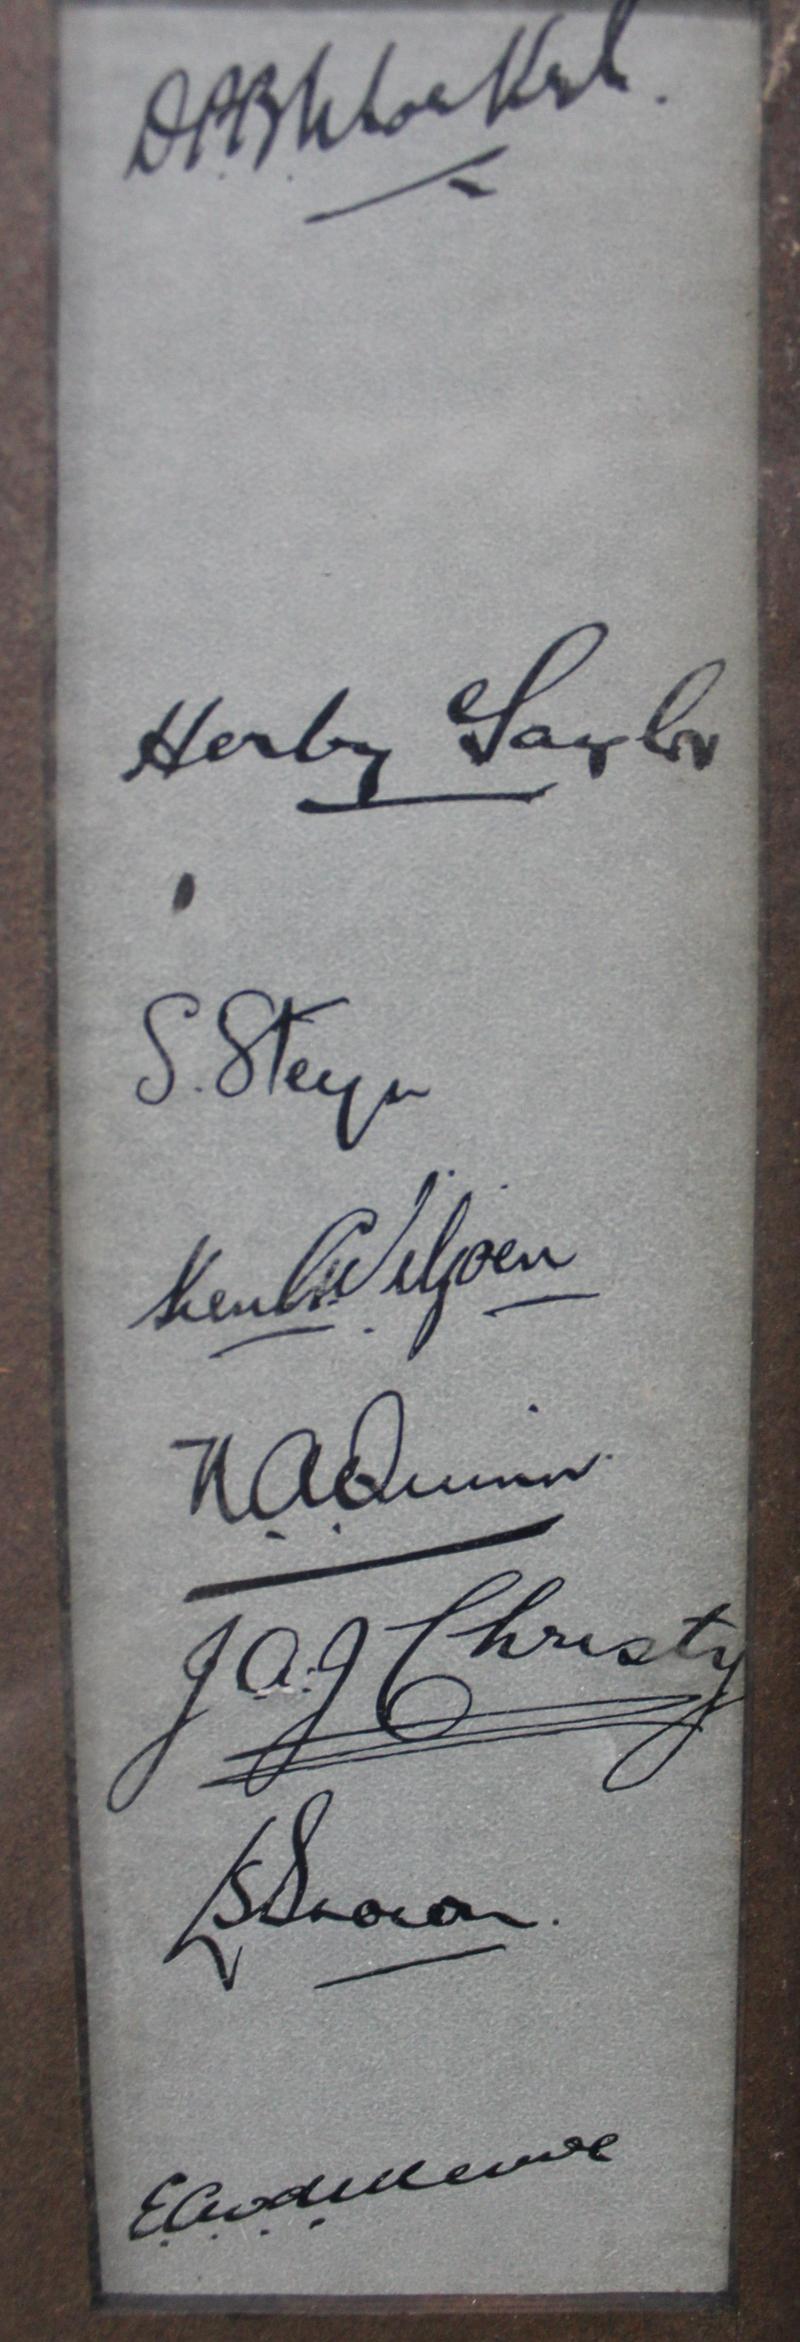 D P B Morkel.
Herby Taylor
S. Steyn
Ken G Viljoen
N. A. Quinn
J. A. J Christy
L S Brown.
E. A. v. d. Merwe